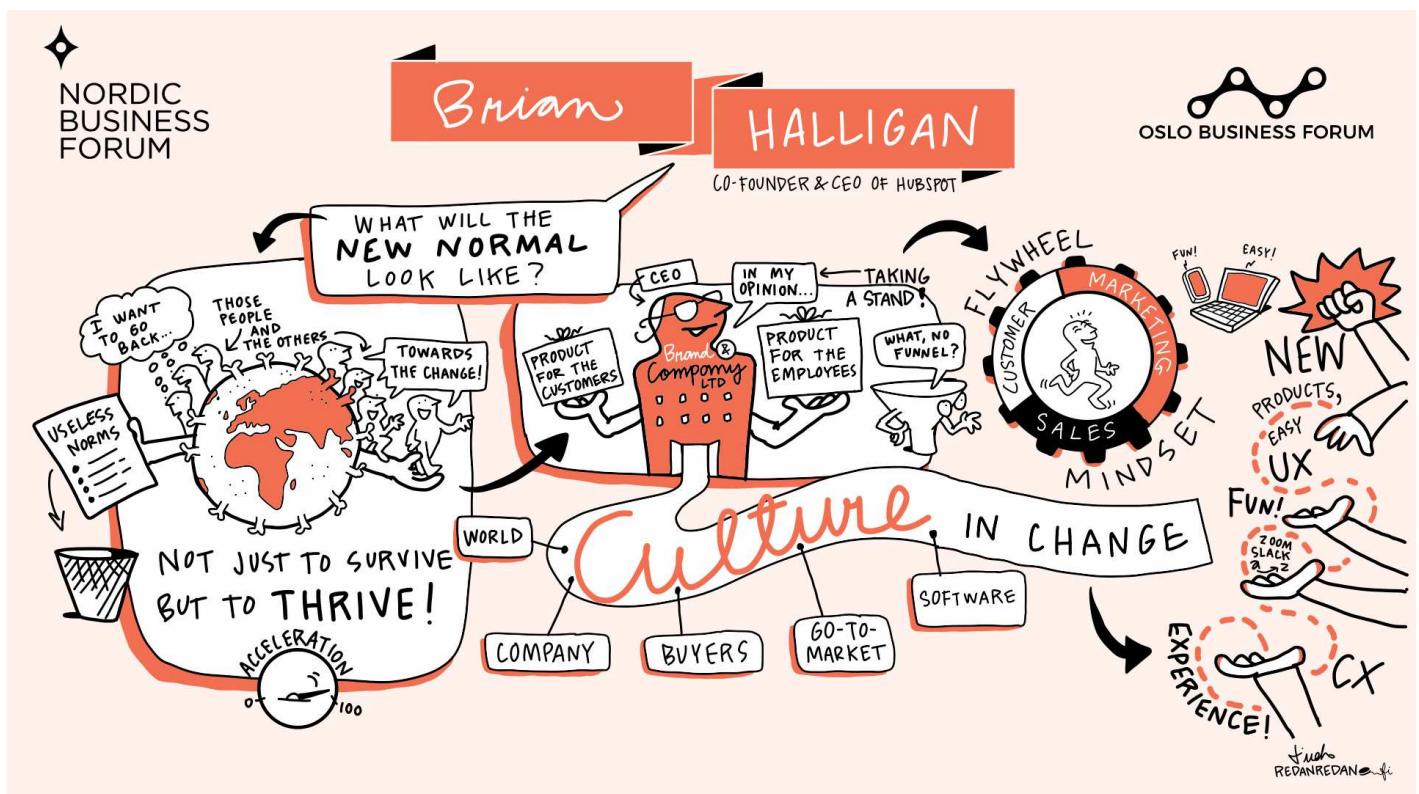 NORDIC
BUSINESS
FORUM
Brian
HALLIGAN
CO-FOUNDER & CEO OF HUBSPOT
OSLO BUSINESS FORUM
WHAT WILL THE
NEW NORMAL
LOOK LIKE?
I WANT
TO GO
BACK...
THOSE
PEOPLE
AND
THE OTHERS
TOWARDS
THE CHANGE!
USELESS
NORMS
NOT JUST TO SURVIVE
BUT TO THRIVE!
ACCELERATION
0
100
CEO
IN MY
OPINION...
TAKING
A STAND!
PRODUCT
FOR THE
CUSTOMERS
Brand &
Company
LTD
PRODUCT
FOR THE
EMPLOYEES
WHAT, NO
FUNNEL?
FLYWHEEL
MINDSET
CUSTOMER
MARKETING
SALES
FUN!
EASY!
NEW
PRODUCTS,
EASY
UX
FUN!
ZOOM
SLACK
a → z
EXPERIENCE!
CX
Culture IN CHANGE
WORLD
COMPANY
BUYERS
GO-TO-
MARKET
SOFTWARE
REDANREDAN